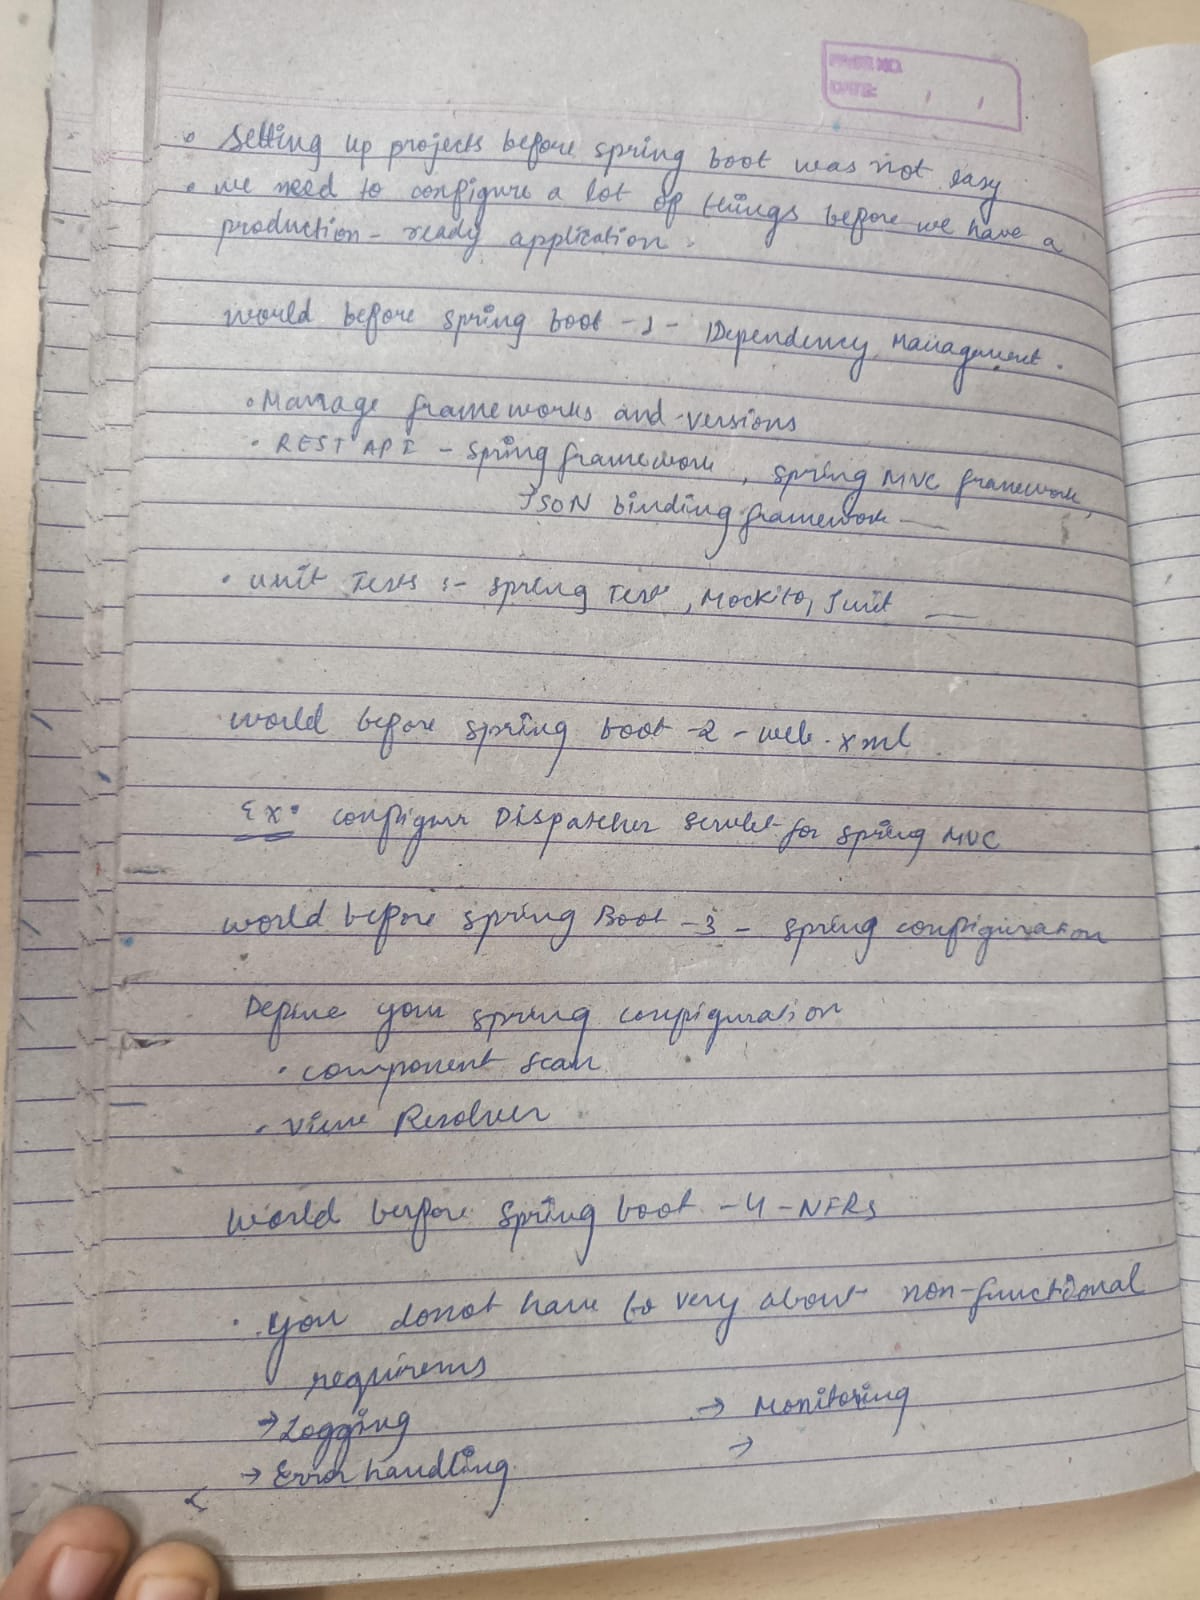 PAGE NO.
DATE: / /
• Setting up projects before spring boot was not easy
• we need to configure a lot of things before we have a
production - ready application.
world before spring boot - 1 - Dependency Management.
• Manage frameworks and versions
• REST API - spring framework, spring MVC framework,
JSON binding framework —
• unit Tests :- spring Test, Mockito, Junit —
world before spring boot - 2 - web.xml
Ex: configure Dispatcher servlet for spring MVC
world before spring Boot - 3 - spring configuration
Define your spring configuration
• component scan
• View Resolver
World before Spring boot - 4 - NFRs
• you donot have to very about non-functional
requirems
→ Logging → Monitoring
→ Error handling →